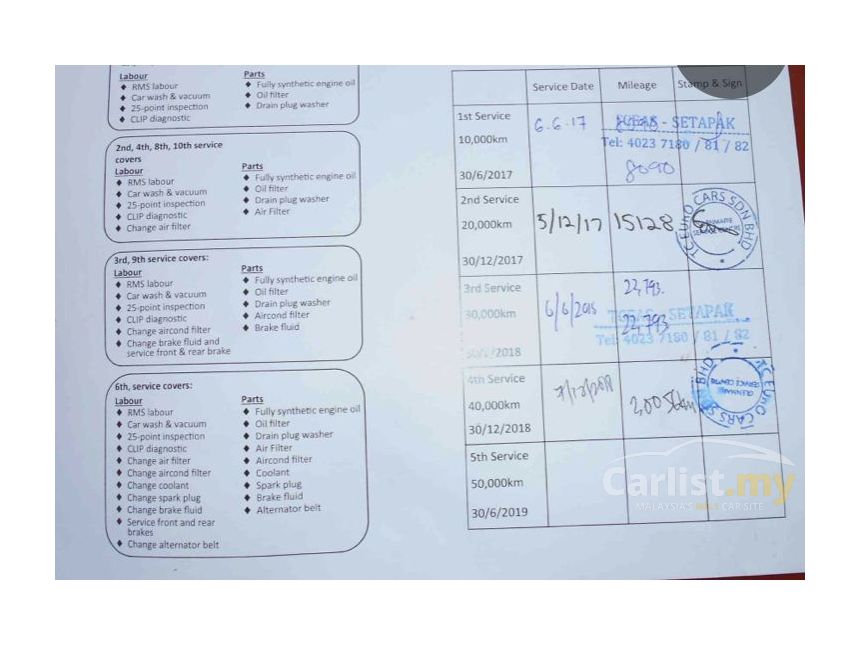 Labour
♦ RMS labour
♦ Car wash & vacuum
♦ 25-point inspection
♦ CLIP diagnostic
Parts
♦ Fully synthetic engine oil
♦ Oil filter
♦ Drain plug washer
2nd, 4th, 8th, 10th service
covers
Labour
♦ RMS labour
♦ Car wash & vacuum
♦ 25-point inspection
♦ CLIP diagnostic
♦ Change air filter
Parts
♦ Fully synthetic engine oil
♦ Oil filter
♦ Drain plug washer
♦ Air Filter
3rd, 9th service covers:
Labour
♦ RMS labour
♦ Car wash & vacuum
♦ 25-point inspection
♦ CLIP diagnostic
♦ Change aircond filter
♦ Change brake fluid and
service front & rear brake
Parts
♦ Fully synthetic engine oil
♦ Oil filter
♦ Drain plug washer
♦ Aircond filter
♦ Brake fluid
6th, service covers:
Labour
♦ RMS labour
♦ Car wash & vacuum
♦ 25-point inspection
♦ CLIP diagnostic
♦ Change air filter
♦ Change aircond filter
♦ Change coolant
♦ Change spark plug
♦ Change brake fluid
♦ Service front and rear
brakes
♦ Change alternator belt
Parts
♦ Fully synthetic engine oil
♦ Oil filter
♦ Drain plug washer
♦ Air Filter
♦ Aircond filter
♦ Coolant
♦ Spark plug
♦ Brake fluid
♦ Alternator belt
Service Date Mileage Stamp & Sign
1st Service
10,000km
30/6/2017
6.6.17
- SETAPAK
Tel: 4023 7180 / 81 / 82
8090
2nd Service
20,000km
30/12/2017
5/12/17 15128
TC EURO CARS SDN BHD
3rd Service
30,000km
/2018
22,793.
22,793
SETAPAK
Tel: 4023 7180 / 81 / 82
4th Service
40,000km
30/12/2018
TC EURO CARS BHD
GLENMARIE
SERVICE CENTRE
5th Service
50,000km
30/6/2019
Carlist.my
MALAYSIA'S CAR SITE